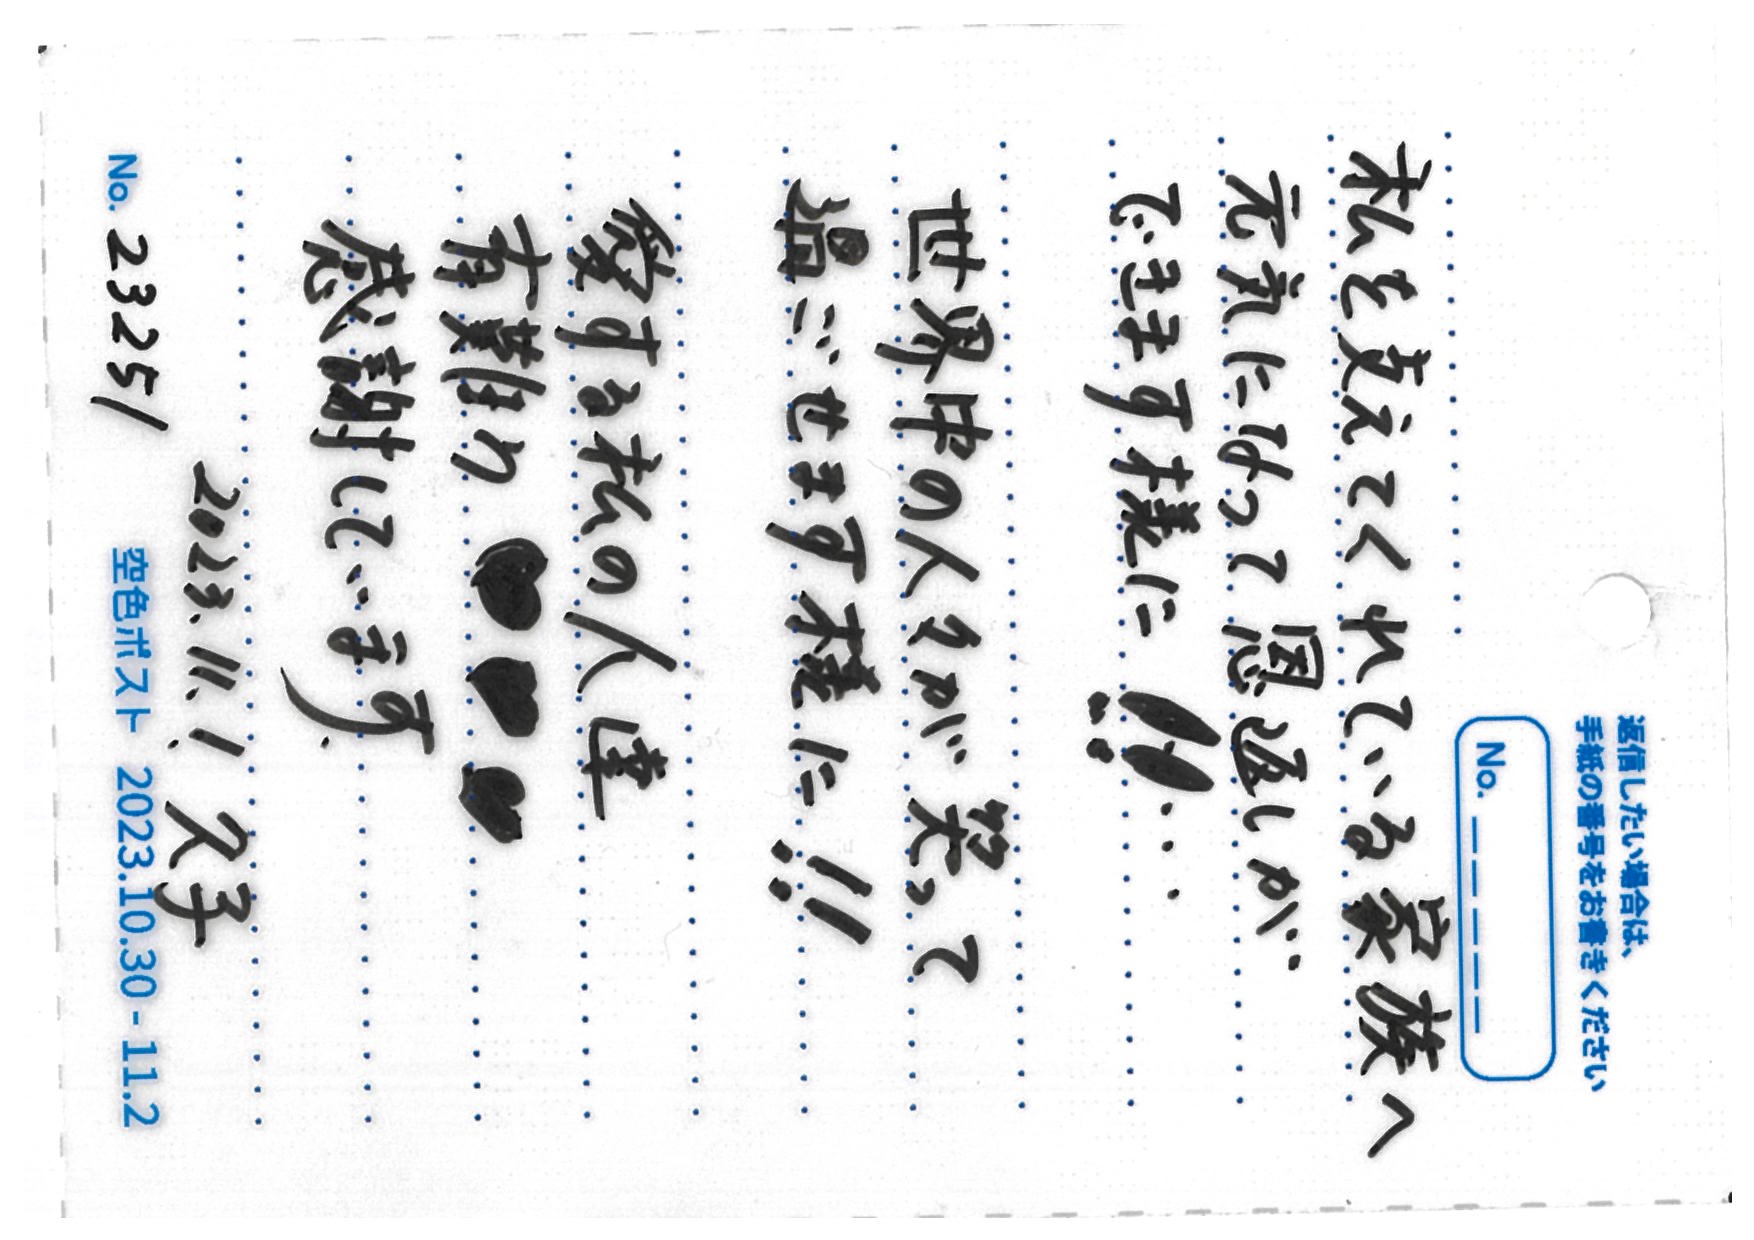 返信したい場合は、
手紙の番号をお書きください
No.
私を支えてくれている家族へ
元気になって恩返しが
できます様に!!...
世界中の人々が笑って
過ごせます様に!!
愛する私の人達
有難う♥♥♥
感謝しています.
2023.11.1 久子
No. 23251 空色ポスト 2023.10.30 - 11.2